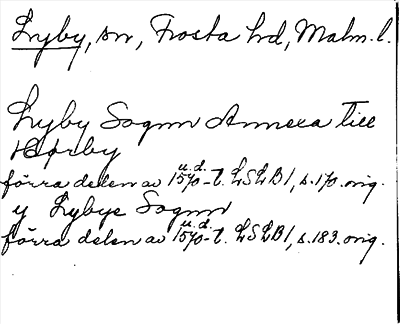 Lyby, sn, Frosta hd, Malm. l.
Lyby Sognn Annexa till
Hörby
u. d.
förra delen av 1570-t. LSLB 1, s. 170. orig.
y Lybye Sognn
u. d.
förra delen av 1570-t. LSLB 1, s. 183. orig.